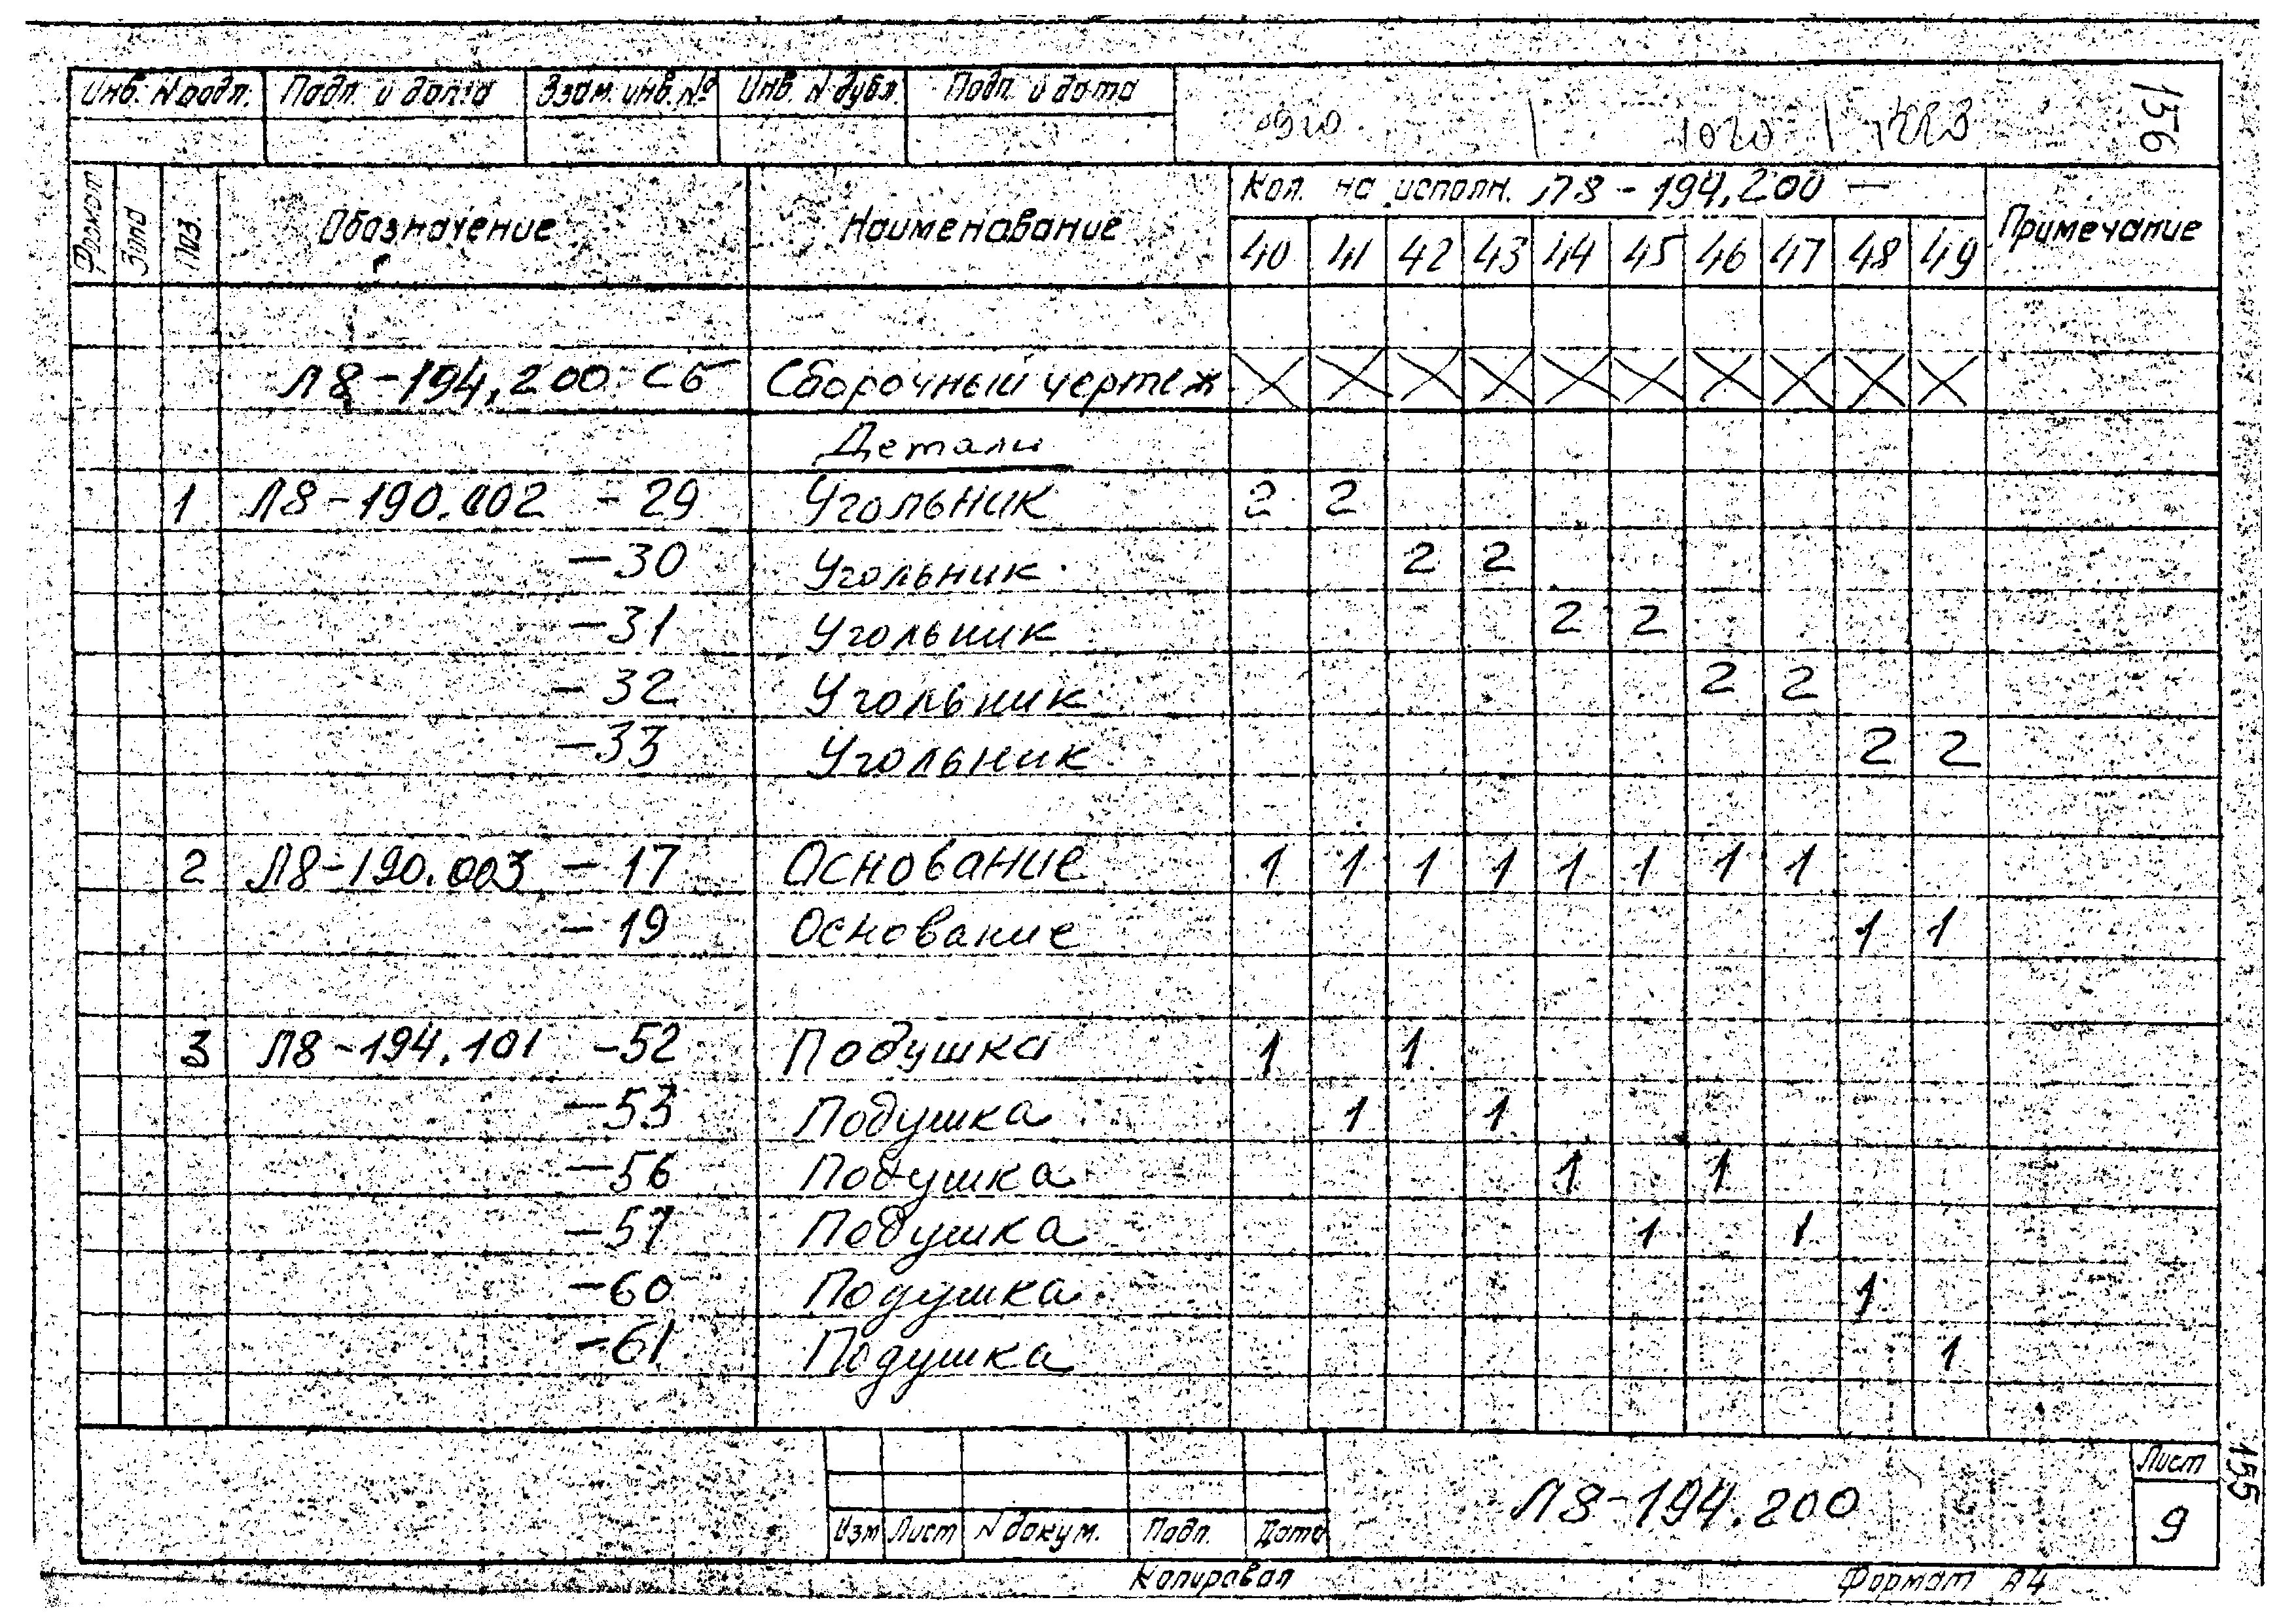 Инв. N подл. Подп. и дата Взам. инв. № Инв. N дубл. Подп. и дата
920 1020 1223 156
Формат Зона Поз. Обозначение Наименование Кол. на исполн. Л8-194.200 — Примечание
40 41 42 43 44 45 46 47 48 49
Л8-194.200 СБ Сборочный чертеж X X X X X X X X X X
Детали
1 Л8-190.002 -29 Угольник 2 2
-30 Угольник 2 2
-31 Угольник 2 2
-32 Угольник 2 2
-33 Угольник 2 2
2 Л8-190.003 -17 Основание 1 1 1 1 1 1 1 1
-19 Основание 1 1
3 Л8-194.101 -52 Подушка 1 1
-53 Подушка 1 1
-56 Подушка 1 1
-57 Подушка 1 1
-60 Подушка 1
-61 Подушка 1
Изм Лист N докум. Подп. Дата
Л8-194.200
Лист
9
155
Копировал Формат А4